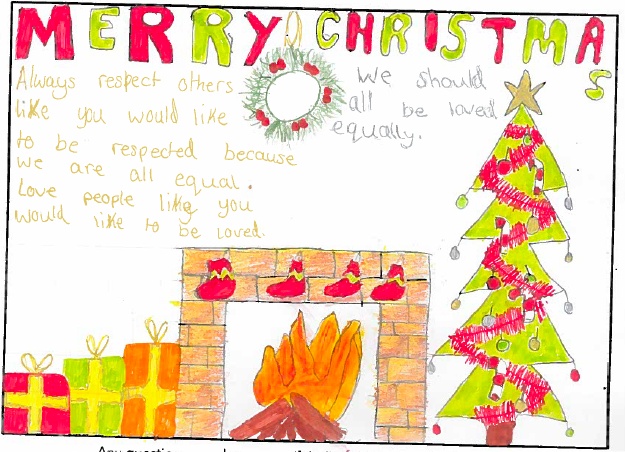 MERRY CHRISTMAS
Always respect others
like you would like
to be respected because
we are all equal.
Love people like you
would like to be loved.
We should
all be loved
equally.